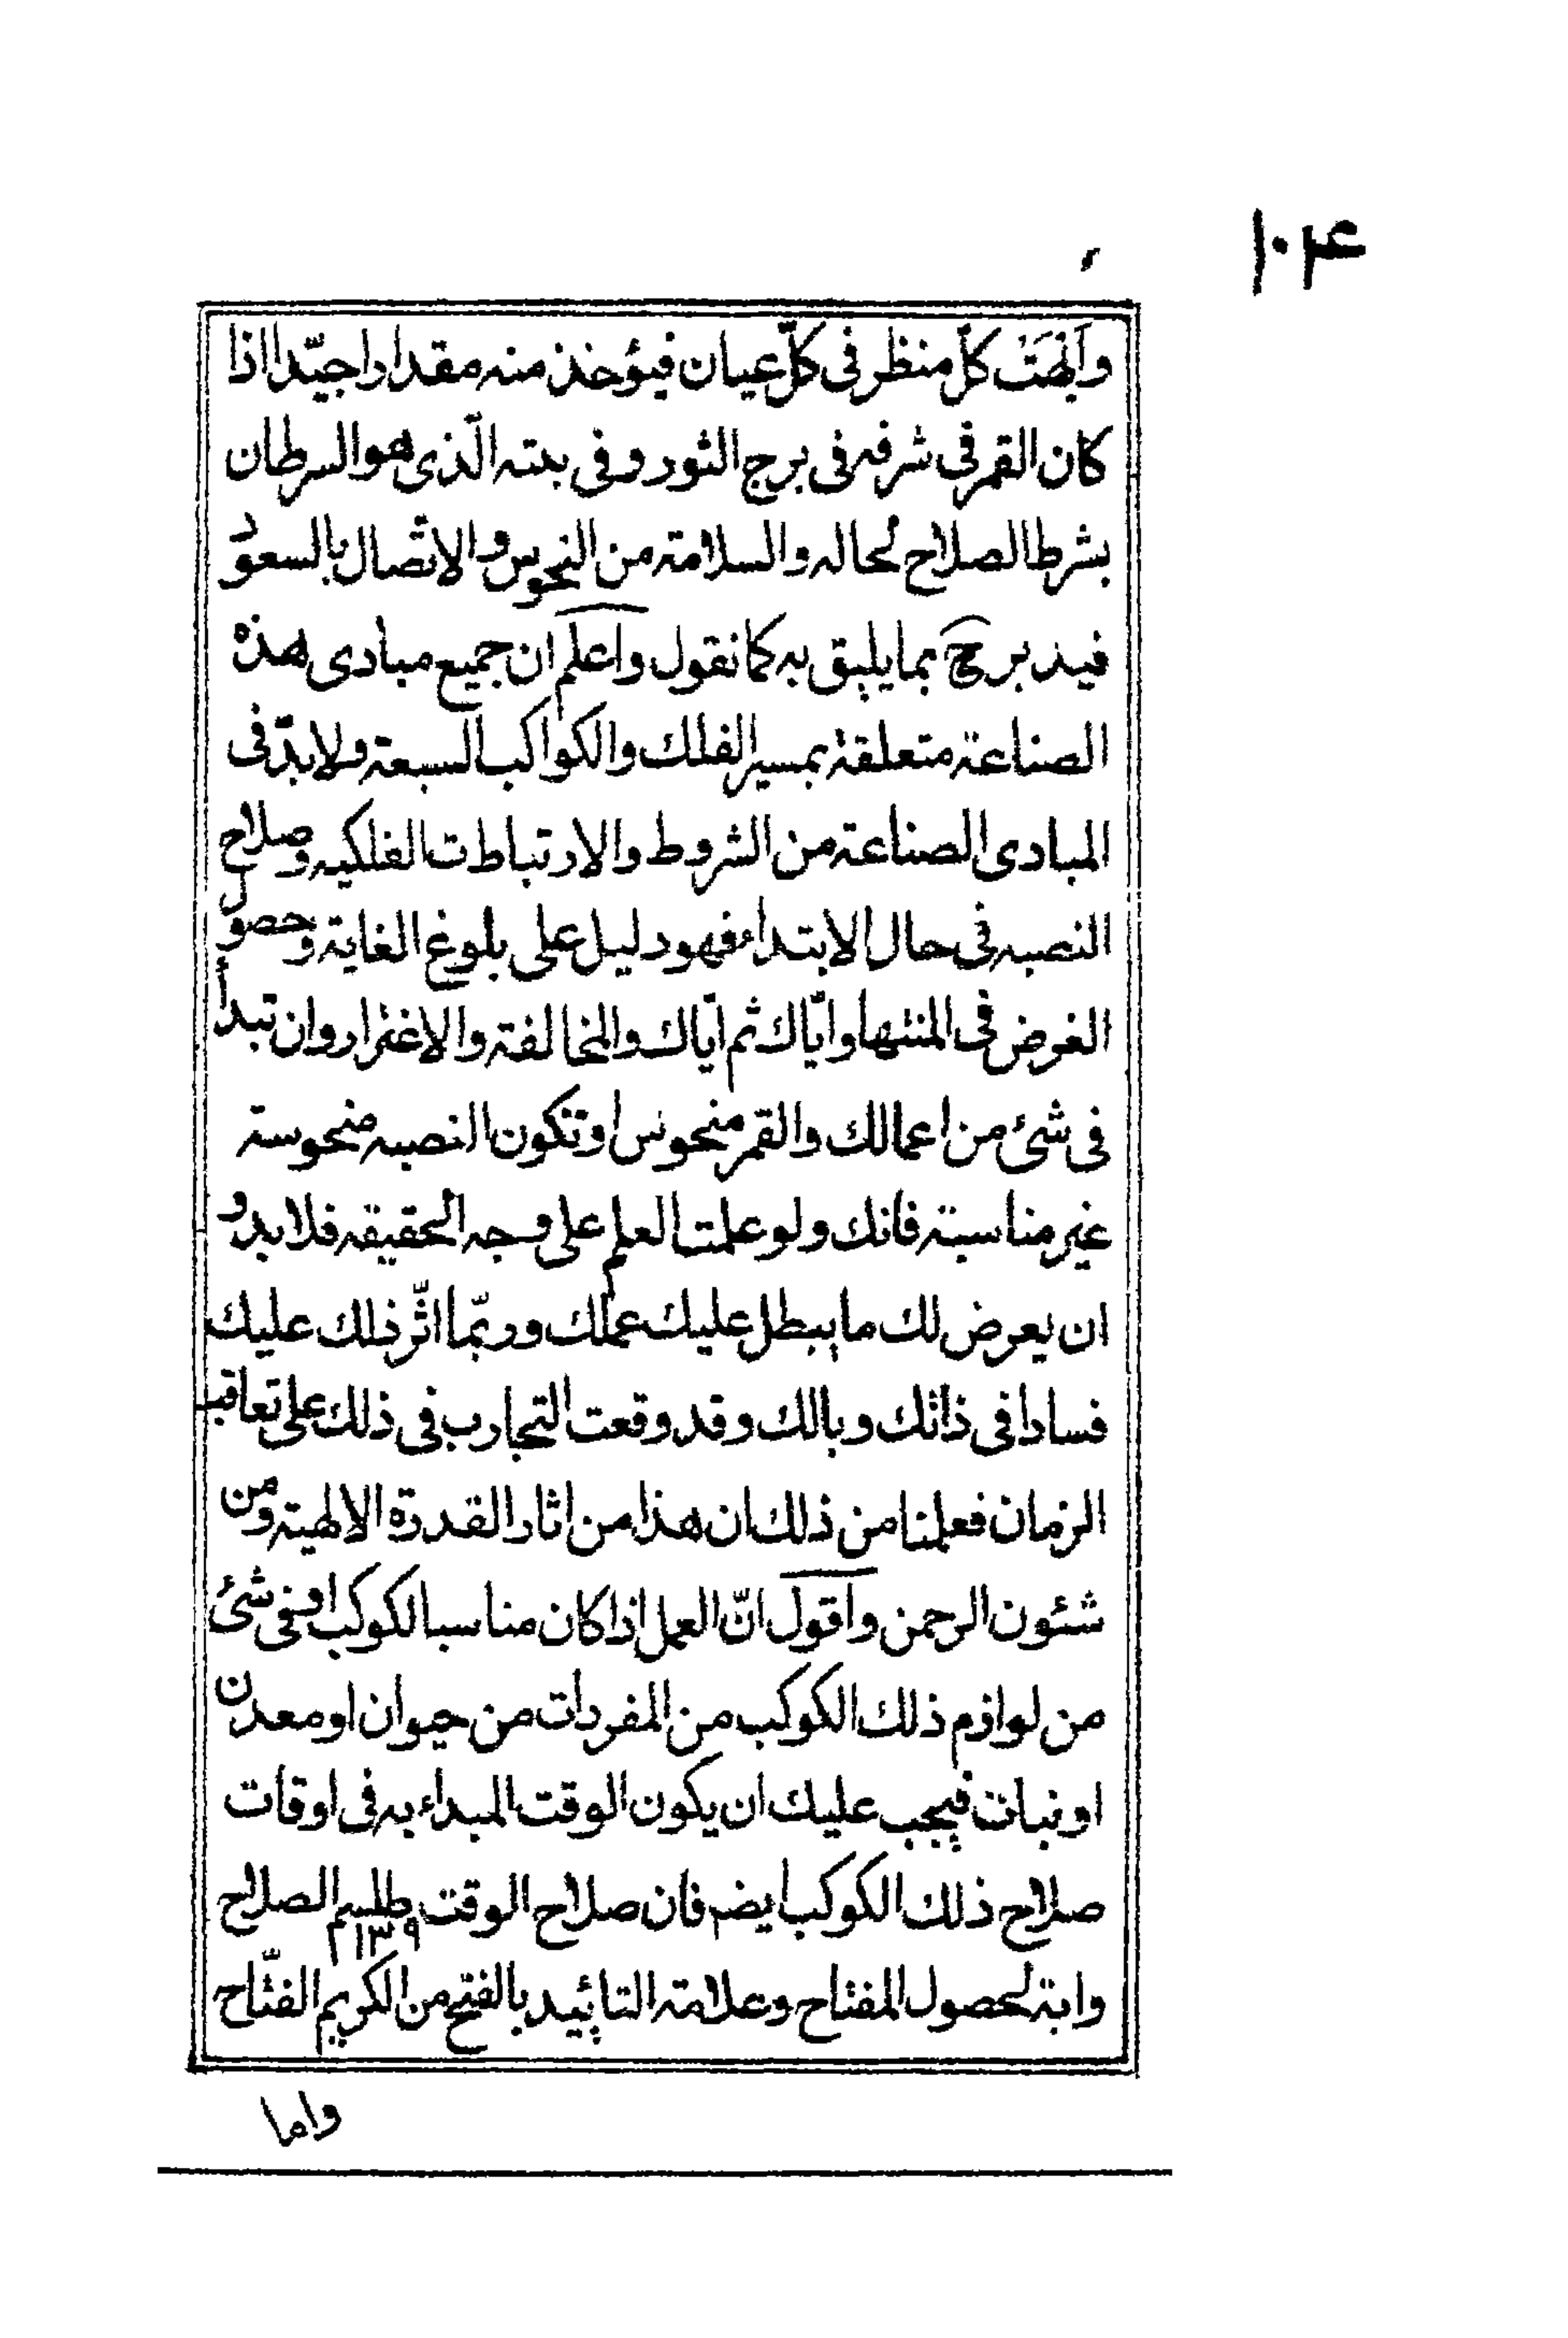 ١٠٤
وابهت كل منظر فى كلّ عيان فيؤخذ منه مقدارا جيّدا اذا
كان القمر فى شرفه فى برج الثور و فى بيته الّذى هو السرطان
بشرط الصلاح لحاله والسلامة من النحوس والاتصال بالسعود
فيدبر ح بما يليق به كما نقول واعلم ان جميع مبادى هذه
الصناعة متعلقة بمسير الفلك والكواكب السبعة ولابدّ فى
المبادى الصناعة من الشروط والارتباطات الفلكيه وصلاح
النصبه فى حال الابتداء فهو دليل على بلوغ الغاية وحصول
الغرض فى المنتها وايّاك ثم ايّاك والمخالفة والاغترار وان تبدأ
فى شئ من اعمالك والقمر منحوس او تكون النصبه منحوسة
غير مناسبة فانك ولو علمت العلم على وجه الحقيقه فلابد و
ان يعرض لك ما يبطل عليك عملك وربّما اثّر ذلك عليك
فسادا فى ذاتك وبالك وقد وقعت التجارب فى ذلك على تعاقب
الزمان فعلمنا من ذلك ان هذا من اثار القدرة الالهية ومن
شئون الرحمن واقول انّ العمل اذا كان مناسبا لكوكب او فى شئ
من لوازم ذلك الكوكب من المفردات من حيوان او معدن
او نبات فيجب عليك ان يكون الوقت المبداء به فى اوقات
صلاح ذلك الكوكب ايضم فان صلاح الوقت طلسم الصلاح
١٣٩
واية لحصول المفتاح وعلامة التاييد بالفتح من الكريم الفتّاح
واما